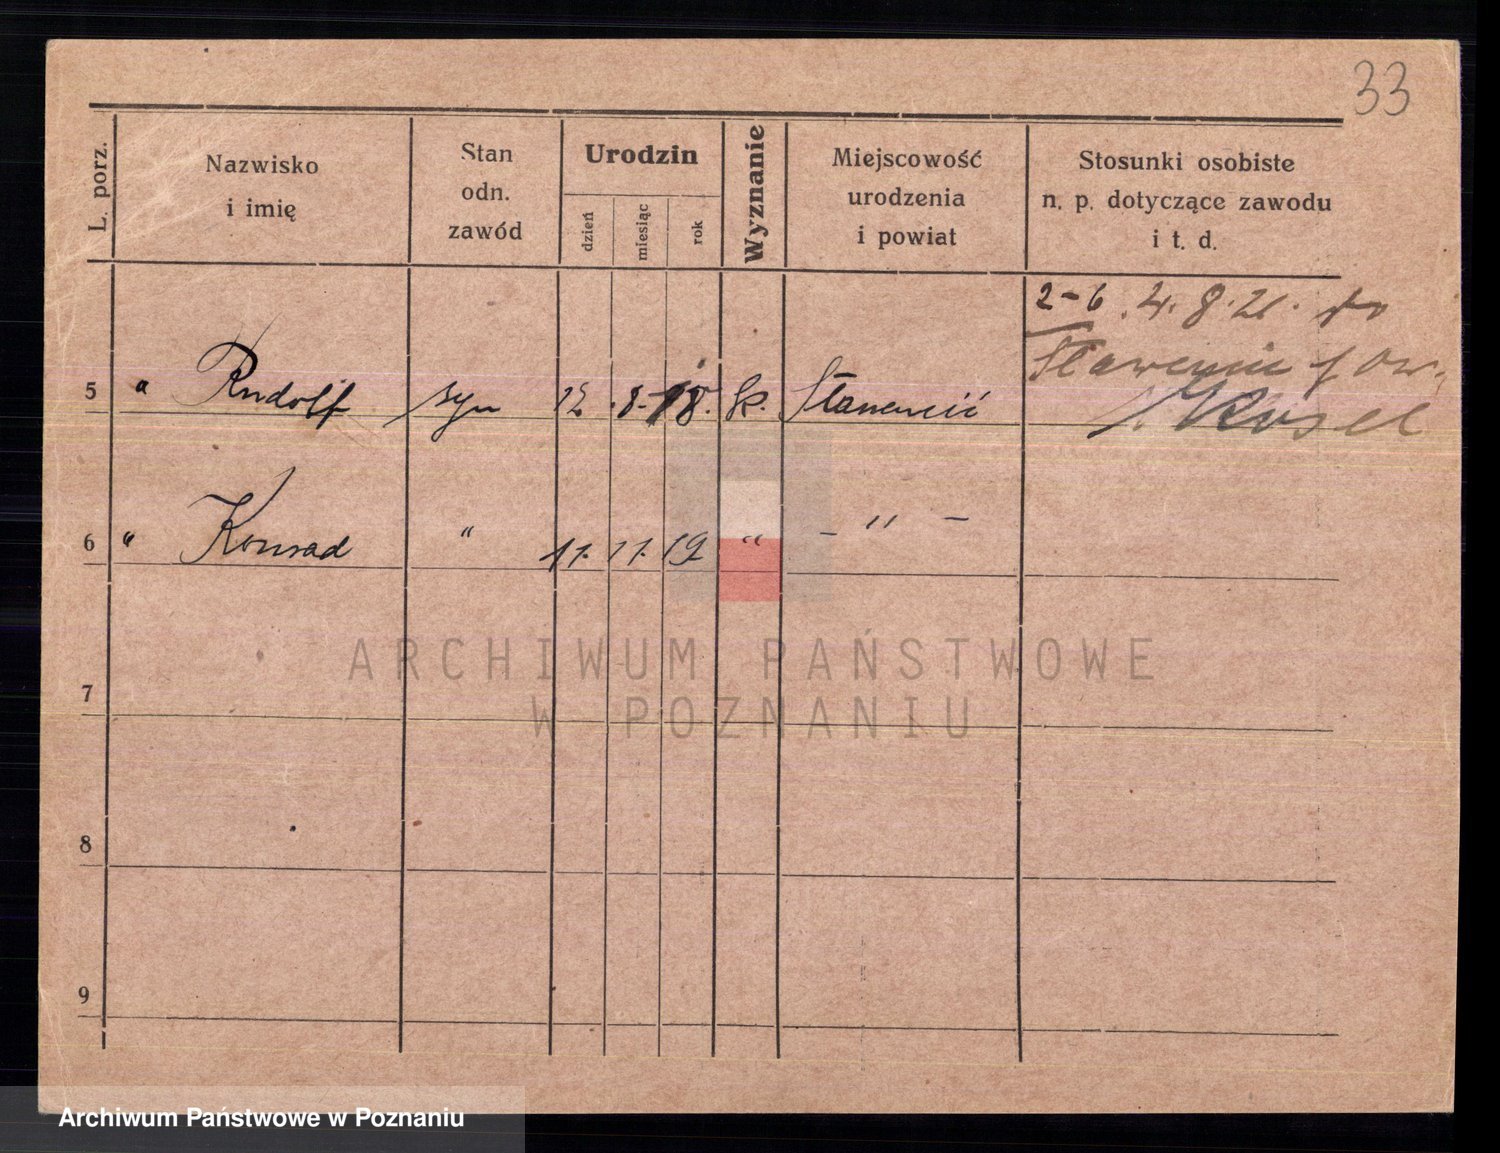 33
L. porz.
Nazwisko
i imię
Stan
odn.
zawód
Urodzin
dzień
miesiąc
rok
Wyznanie
Miejscowość
urodzenia
i powiat
Stosunki osobiste
n. p. dotyczące zawodu
i t. d.
2-6 . 4. 8. 21. do
Kosel
5 " Rudolf syn 12 . 8. 18.
6 " Konrad " 11. 11. 19 " - " -
7
8
9
ARCHIWUM PAŃSTWOWE
W POZNANIU
Archiwum Państwowe w Poznaniu